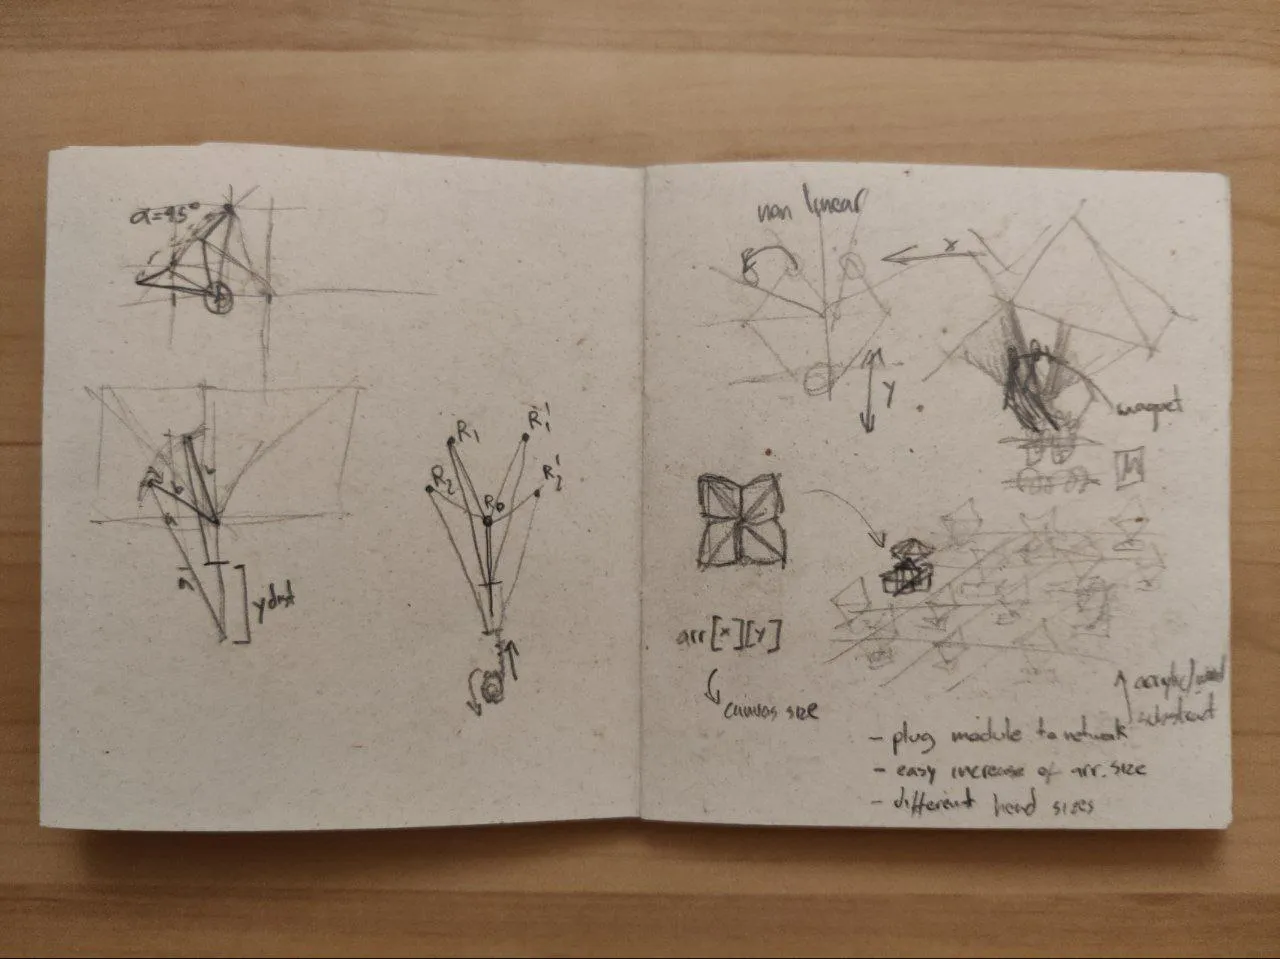 α=45°
y dist
R₁
R₁'
R₂
R₂'
R₀
non linear
x
y
magnet
M
arr[x][y]
canvas size
acrylic/wood
substract
- plug module to network
- easy increase of arr. size
- different head sizes